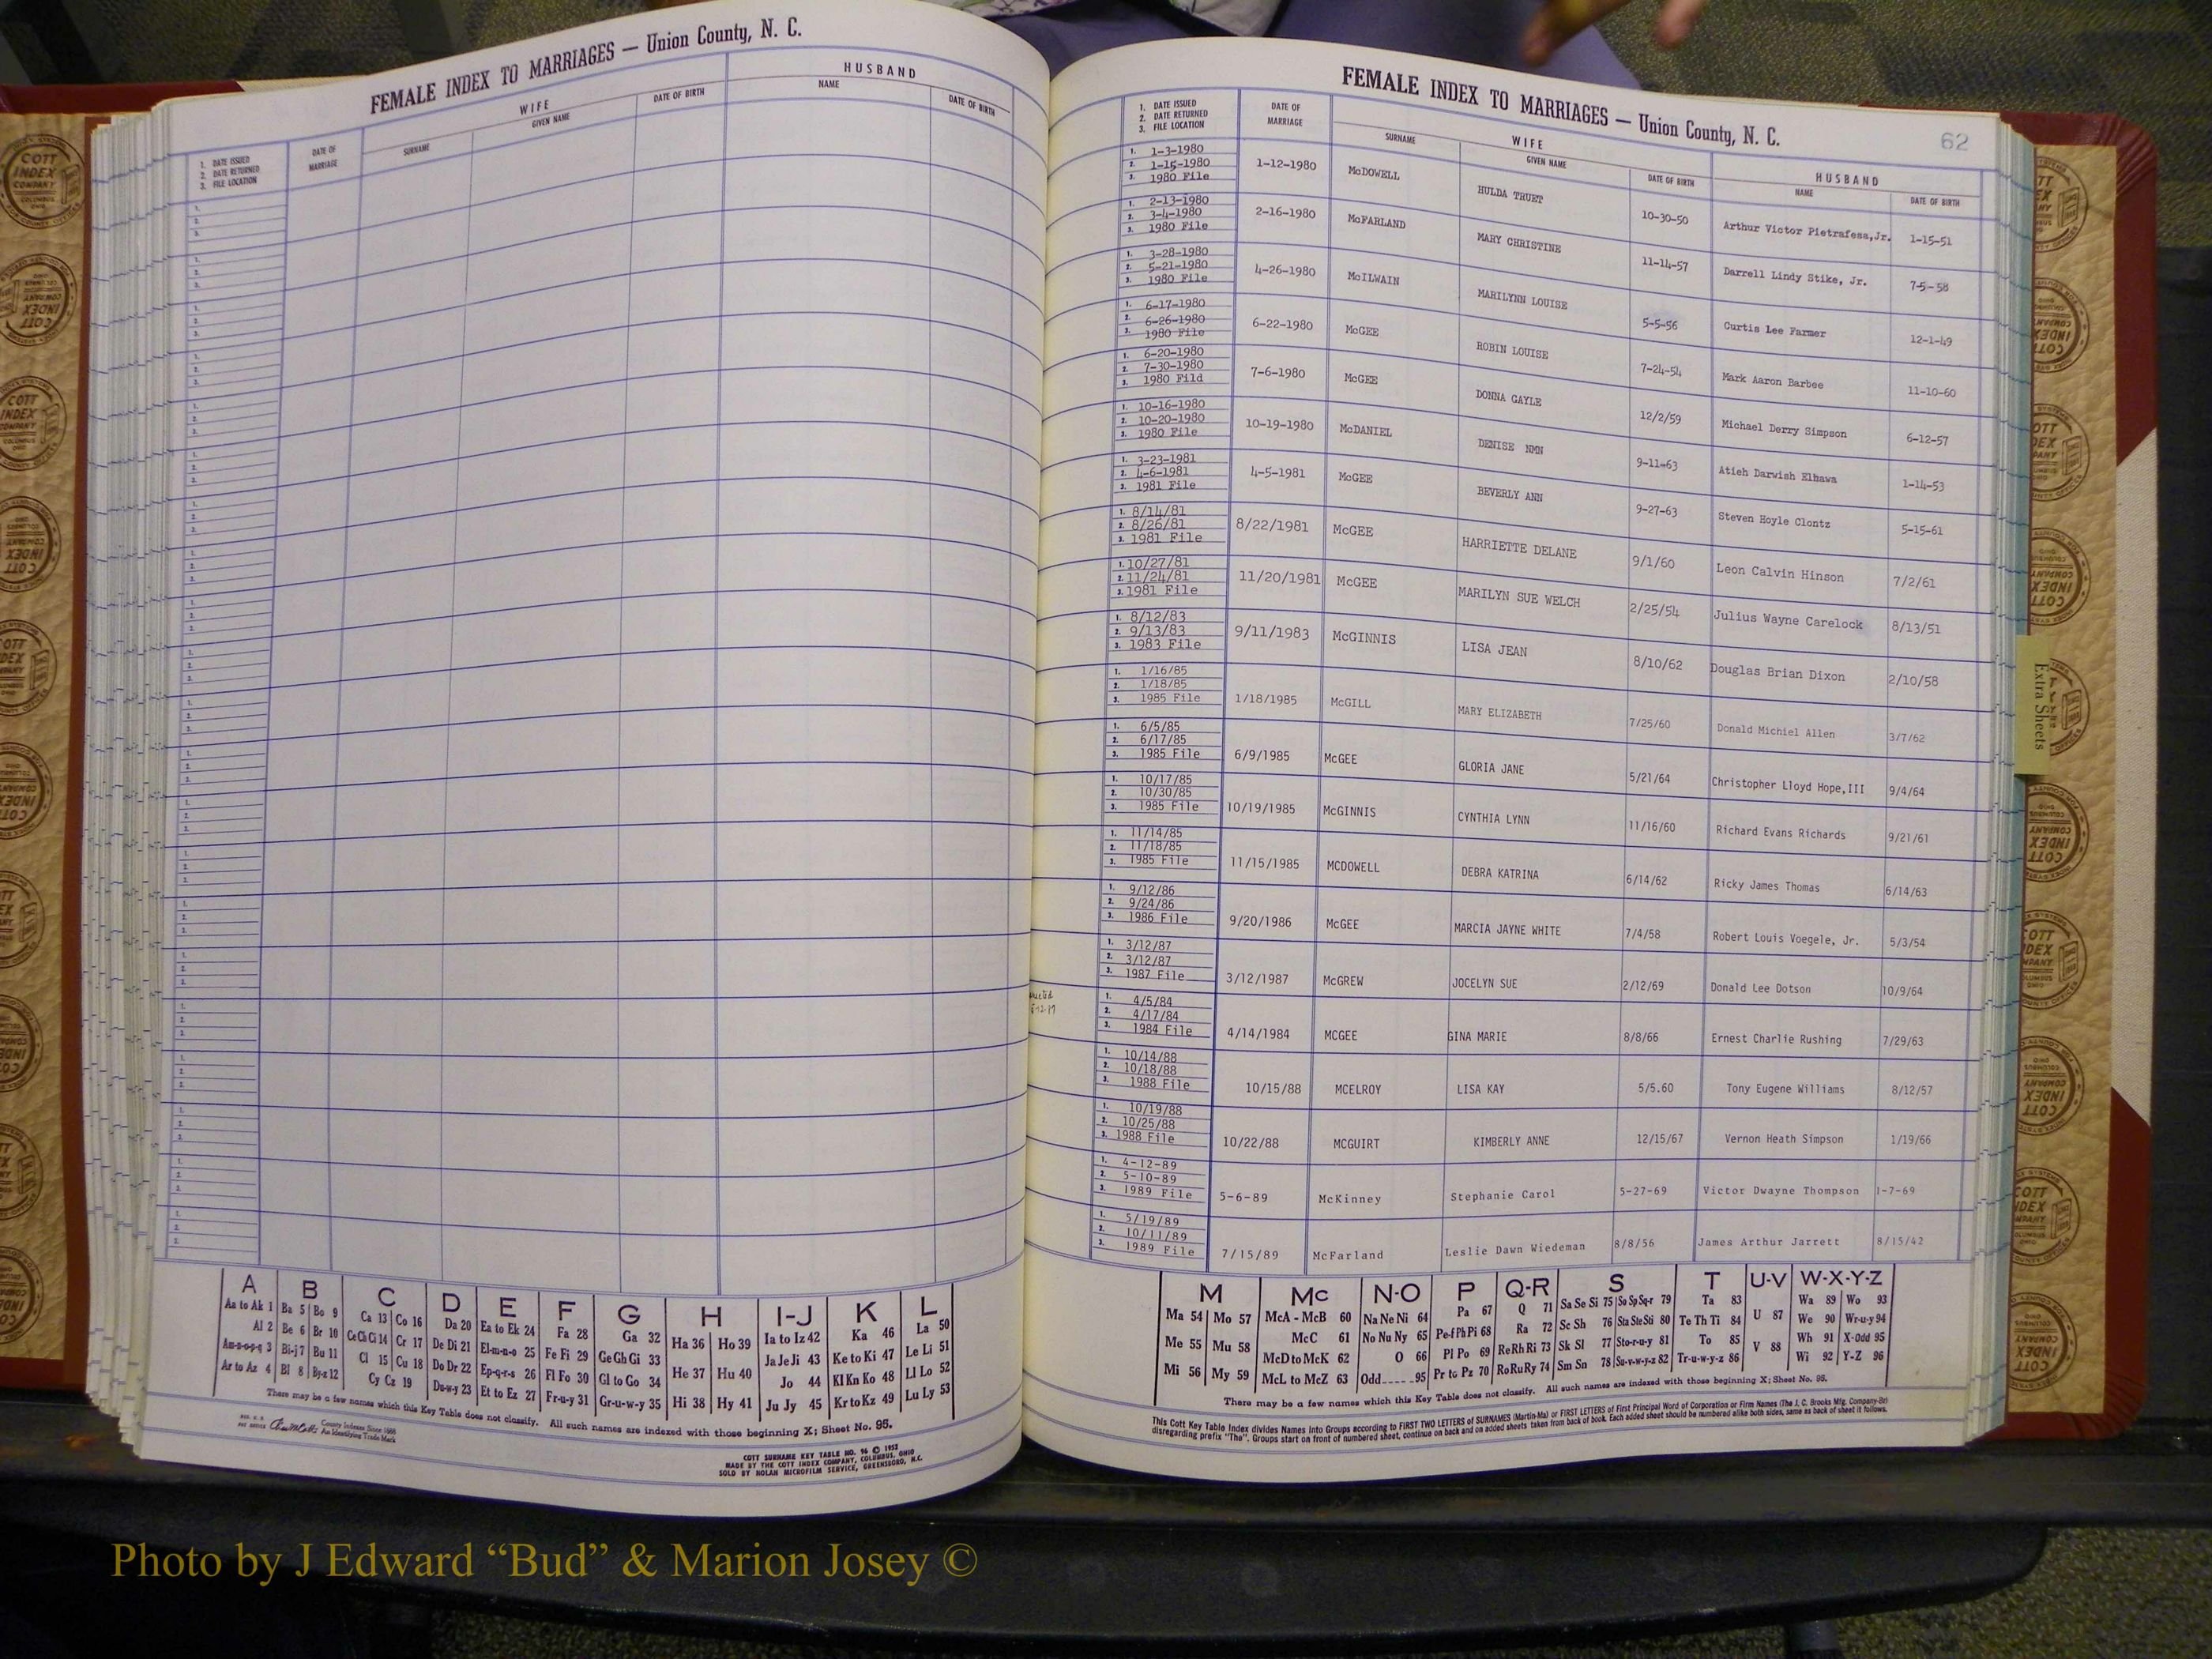 FEMALE INDEX TO MARRIAGES — Union County, N. C.
1. DATE ISSUED
2. DATE RETURNED
3. FILE LOCATION
DATE OF MARRIAGE
WIFE
SURNAME
GIVEN NAME
DATE OF BIRTH
HUSBAND
NAME
DATE OF BIRTH
A B C D E F G H I-J K L
Aa to Ak 1 Ba 5 Bo 9 Ca 13 Co 16 Da 20 Ea to Ek 24 Fa 28 Ga 32 Ha 36 Ho 39 Ia to Iz 42 Ka 46 La 50
Al 2 Be 6 Br 10 Ce Ch Ci 14 Cr 17 De Di 21 El-m-n-o 25 Fe Fi 29 Ge Gh Gi 33 Ja Je Ji 43 Ke to Ki 47 Le Li 51
Am-n-o-p-q 3 Bi-j 7 Bu 11 Cl 15 Cu 18 Do Dr 22 Ep-q-r-s 26 Fl Fo 30 Gl to Go 34 He 37 Hu 40 Jo 44 Kl Kn Ko 48 Ll Lo 52
Ar to Az 4 Bl 8 By-z 12 Cy Cz 19 Du-w-y 23 Et to Ez 27 Fr-u-y 31 Gr-u-w-y 35 Hi 38 Hy 41 Ju Jy 45 Kr to Kz 49 Lu Ly 53
There may be a few names which this Key Table does not classify. All such names are indexed with those beginning X; Sheet No. 95.
County Indexes Since 1888
An Identifying Trade Mark
COTT SURNAME KEY TABLE NO. 96 © 1952
MADE BY THE COTT INDEX COMPANY, COLUMBUS, OHIO
SOLD BY NOLAN MICROFILM SERVICE, GREENSBORO, N.C.
FEMALE INDEX TO MARRIAGES — Union County, N. C.
62
1. DATE ISSUED
2. DATE RETURNED
3. FILE LOCATION
DATE OF MARRIAGE
WIFE
SURNAME
GIVEN NAME
DATE OF BIRTH
HUSBAND
NAME
DATE OF BIRTH
1. 1-3-1980
2. 1-15-1980
3. 1980 File
1-12-1980 McDOWELL HULDA TRUET 10-30-50 Arthur Victor Pietrafesa,Jr. 1-15-51
1. 2-13-1980
2. 3-4-1980
3. 1980 File
2-16-1980 McFARLAND MARY CHRISTINE 11-14-57 Darrell Lindy Stike, Jr. 7-5-58
1. 3-28-1980
2. 5-21-1980
3. 1980 File
4-26-1980 McILWAIN MARILYNN LOUISE 5-5-56 Curtis Lee Farmer 12-1-49
1. 6-17-1980
2. 6-26-1980
3. 1980 File
6-22-1980 McGEE ROBIN LOUISE 7-24-54 Mark Aaron Barbee 11-10-60
1. 6-20-1980
2. 7-30-1980
3. 1980 Fild
7-6-1980 McGEE DONNA GAYLE 12/2/59 Michael Derry Simpson 6-12-57
1. 10-16-1980
2. 10-20-1980
3. 1980 File
10-19-1980 McDANIEL DENISE NMN 9-11-63 Atieh Darwish Elhawa 1-14-53
1. 3-23-1981
2. 4-6-1981
3. 1981 File
4-5-1981 McGEE BEVERLY ANN 9-27-63 Steven Hoyle Clontz 5-15-61
1. 8/14/81
2. 8/26/81
3. 1981 File
8/22/1981 McGEE HARRIETTE DELANE 9/1/60 Leon Calvin Hinson 7/2/61
1. 10/27/81
2. 11/24/81
3. 1981 File
11/20/1981 McGEE MARILYN SUE WELCH 2/25/54 Julius Wayne Carelock 8/13/51
1. 8/12/83
2. 9/13/83
3. 1983 File
9/11/1983 McGINNIS LISA JEAN 8/10/62 Douglas Brian Dixon 2/10/58
1. 1/16/85
2. 1/18/85
3. 1985 File
1/18/1985 McGILL MARY ELIZABETH 7/25/60 Donald Michiel Allen 3/7/62
1. 6/5/85
2. 6/17/85
3. 1985 File
6/9/1985 McGEE GLORIA JANE 5/21/64 Christopher Lloyd Hope,III 9/4/64
1. 10/17/85
2. 10/30/85
3. 1985 File
10/19/1985 McGINNIS CYNTHIA LYNN 11/16/60 Richard Evans Richards 9/21/61
1. 11/14/85
2. 11/18/85
3. 1985 File
11/15/1985 MCDOWELL DEBRA KATRINA 6/14/62 Ricky James Thomas 6/14/63
1. 9/12/86
2. 9/24/86
3. 1986 File
9/20/1986 McGEE MARCIA JAYNE WHITE 7/4/58 Robert Louis Voegele, Jr. 5/3/54
1. 3/12/87
2. 3/12/87
3. 1987 File
3/12/1987 McGREW JOCELYN SUE 2/12/69 Donald Lee Dotson 10/9/64
1. 4/5/84
2. 4/17/84
3. 1984 File
4/14/1984 MCGEE GINA MARIE 8/8/66 Ernest Charlie Rushing 7/29/63
1. 10/14/88
2. 10/18/88
3. 1988 File
10/15/88 MCELROY LISA KAY 5/5.60 Tony Eugene Williams 8/12/57
1. 10/19/88
2. 10/25/88
3. 1988 File
10/22/88 MCGUIRT KIMBERLY ANNE 12/15/67 Vernon Heath Simpson 1/19/66
1. 4-12-89
2. 5-10-89
3. 1989 File
5-6-89 McKinney Stephanie Carol 5-27-69 Victor Dwayne Thompson 1-7-69
1. 5/19/89
2. 10/11/89
3. 1989 File
7/15/89 McFarland Leslie Dawn Wiedeman 8/8/56 James Arthur Jarrett 8/15/42
M Mc N-O P Q-R S T U-V W-X-Y-Z
Ma 54 Mo 57 McA - McB 60 Na Ne Ni 64 Pa 67 Q 71 Sa Se Si 75 So Sp Sq-r 79 Ta 83 U 87 Wa 89 Wo 93
Me 55 Mu 58 McC 61 No Nu Ny 65 Pe-f Ph Pi 68 Ra 72 Sc Sh 76 Sta Ste Sti 80 Te Th Ti 84 We 90 Wr-u-y 94
McD to McK 62 O 66 Pl Po 69 Re Rh Ri 73 Sk Sl 77 Sto-r-u-y 81 To 85 V 88 Wh 91 X-Odd 95
Mi 56 My 59 McL to McZ 63 Odd-----95 Pr to Pz 70 Ro Ru Ry 74 Sm Sn 78 Su-v-w-y-z 82 Tr-u-w-y-z 86 Wi 92 Y-Z 96
There may be a few names which this Key Table does not classify. All such names are indexed with those beginning X; Sheet No. 95.
This Cott Key Table Index divides Names Into Groups according to FIRST TWO LETTERS of SURNAMES (Martin-Ma) or FIRST LETTERS of First Principal Word of Corporation or Firm Names (The J. C. Brooks Mfg. Company-Br)
disregarding prefix "The". Groups start on front of numbered sheet, continue on back and on added sheets taken from back of book. Each added sheet should be numbered alike both sides, same as back of sheet it follows.
Extra Sheets
COTT INDEX COMPANY
Photo by J Edward “Bud” & Marion Josey ©